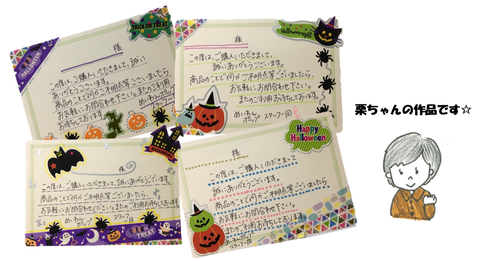 TRICK OR TREAT
HALLOWEEN
様
この度は、ご購入いただきまして、誠に
ありがとうございます。
商品のことで何かご不明点等ございましたら
お気軽にお問合わせ下さい。またの
ご利用お待ちしております。
Halloween night
様
この度は、ご購入いただきまして、
誠にありがとうございます。
商品のことで何かご不明点等ございましたら、
お気軽にお問合わせ下さい。
またのご利用お待ちしております。
スタッフ一同
様
この度は、ご購入いただきまして、誠にありがとうございます。
商品のことで何かご不明点等ございましたら、
お気軽にお問合わせくださいませ。またのご利用お待ちしております
スタッフ一同
TREAT
Happy
Halloween
様
この度は、ご購入いただきまして
誠にありがとうございます。
商品のことで何かご不明点等ございましたら
お気軽にお問合わせ下さい。
またのご利用お待ちしております
スタッフ一同
栗ちゃんの作品です☆